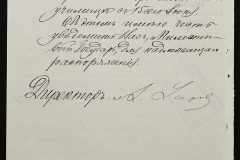 училищѣ с
Объ этомъ имѣю честь
увѣдомить Васъ, Милости-
вый Государь, для надлежащаго
распоряженія.
Директоръ А.